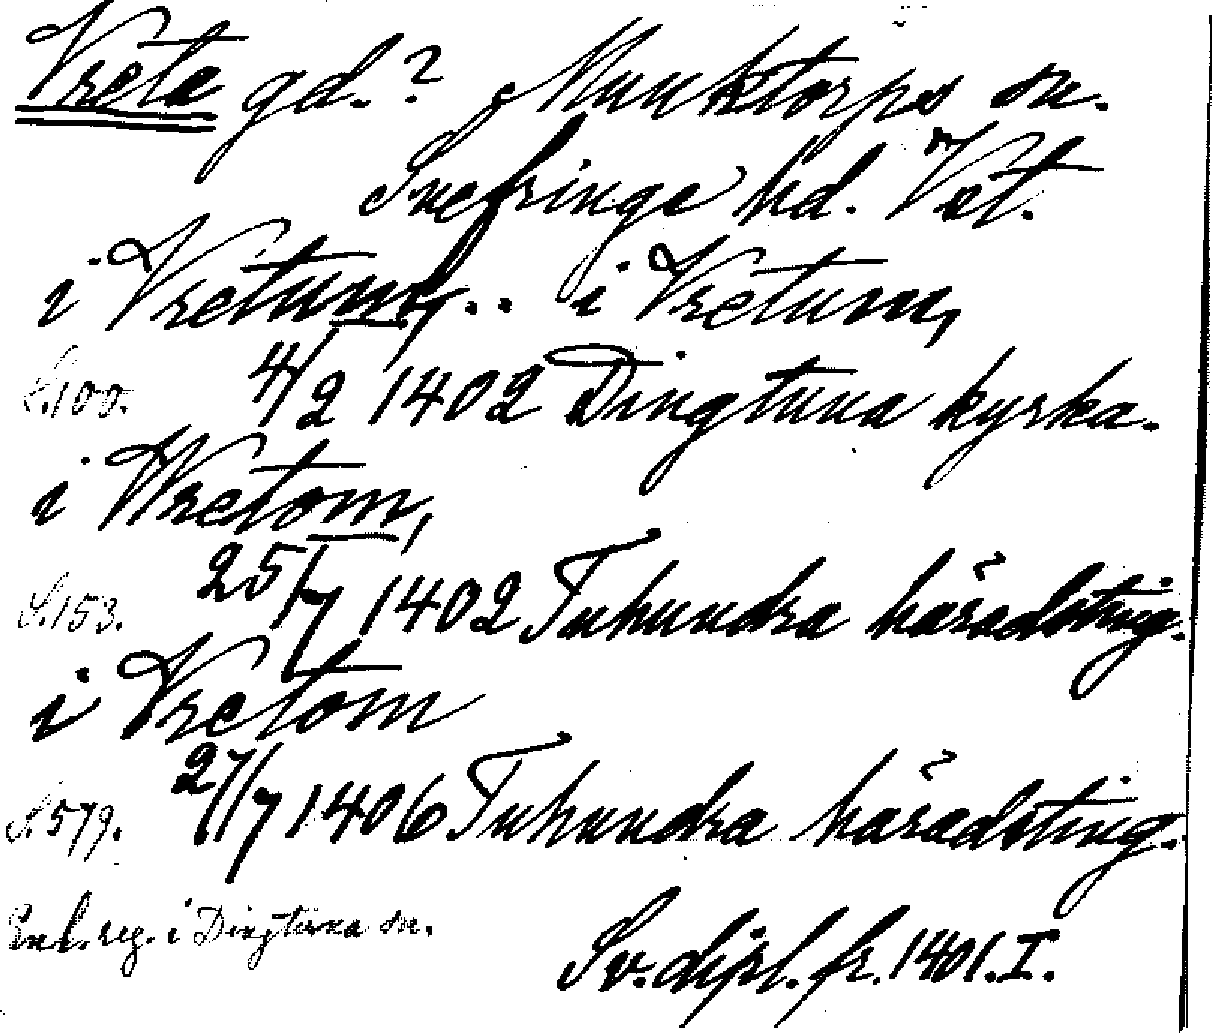 Vreta gd.? Munktorps sn.
Snefringe hd. Vstl.
i Vretum, .. i Vretum,
S.100. 4/2 1402 Dingtuna kyrka.
i Wretom,
S.153. 25/7 1402 Tuhundra häradsting.
i Vretom
S.579. 27/7 1406 Tuhundra häradsting.
Enl. reg. i Dingtuna sn.
Sv. dipl. fr. 1401. I.